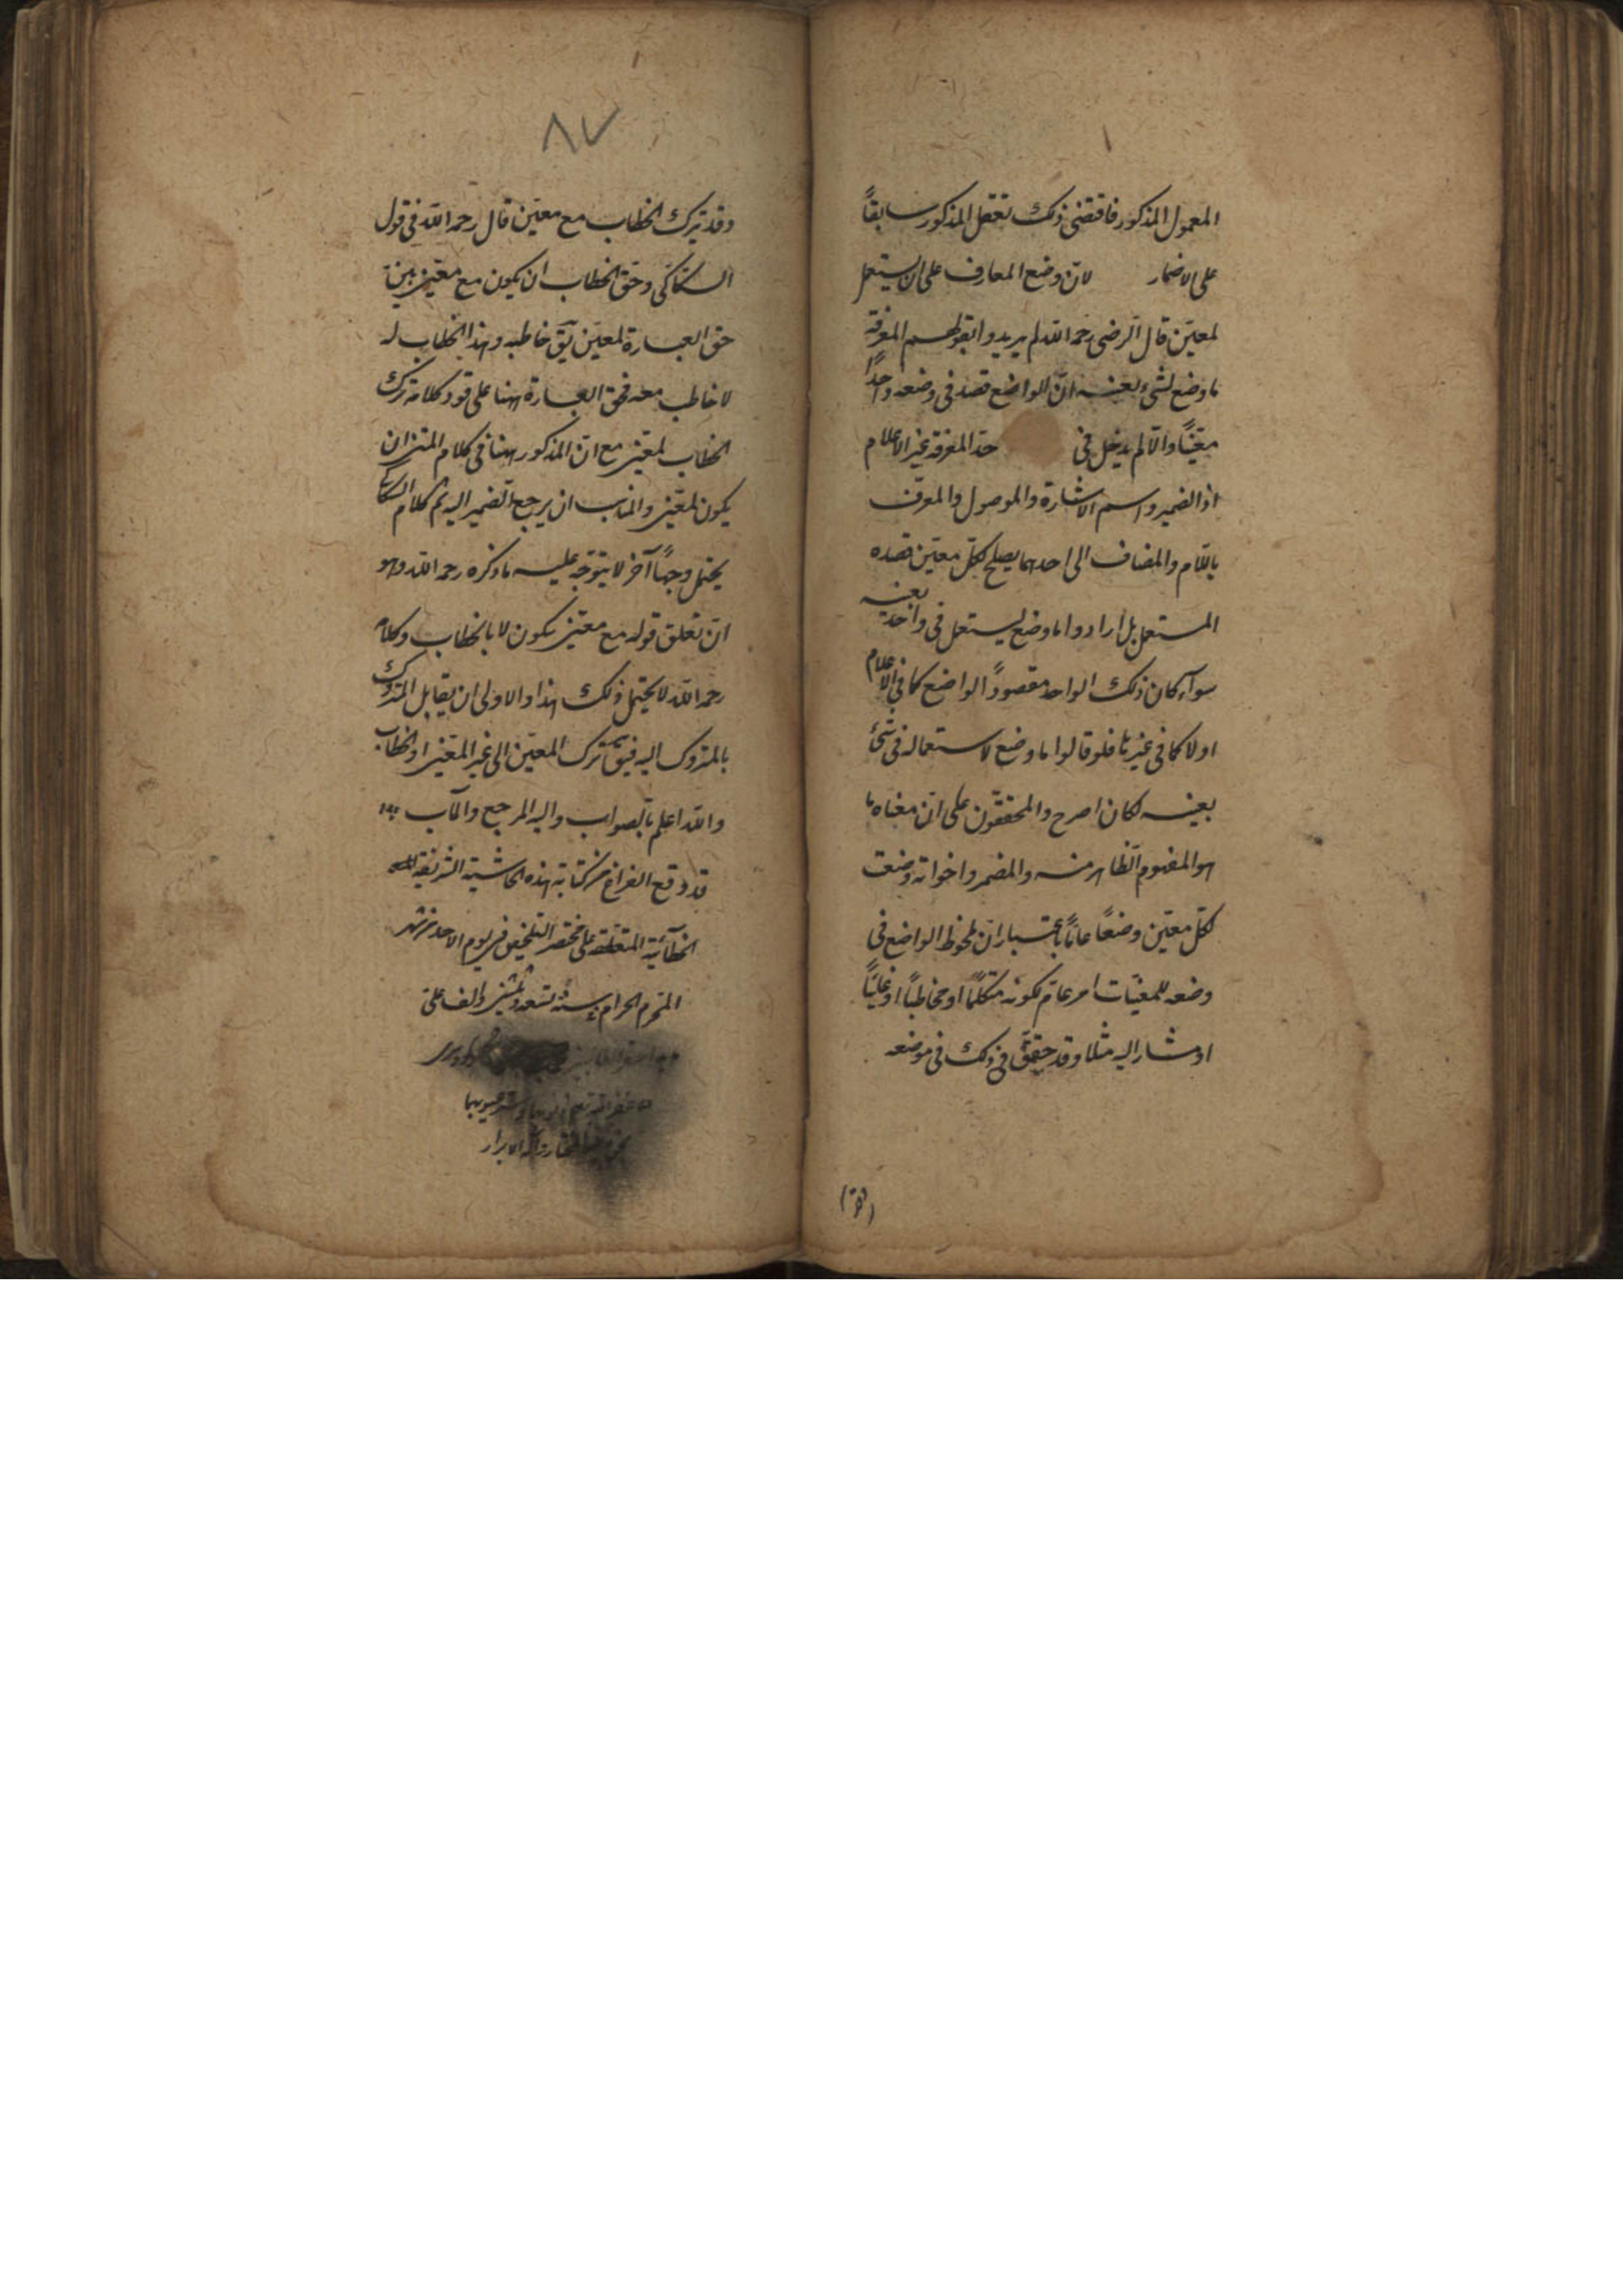 المعمول المذكور فاقتضى ذلك تعقل المذكور سابقاً
على الاضمار لانّ وضع المعارف على ان يستعمل
لمعيّن قال الرضى رحمه اللّه لم يريدوا بقولهم المعرفة
ما وضع لشئ بعينه انّ الواضع قصد فى وضعه واحداً
معيّناً والّا لم يدخل فى حدّ المعرفة غير الاعلام
اذ الضمير واسم الاشارة والموصول والمعرّف
باللّام والمضاف الى احدهما يصلح لكلّ معيّن قصده
المستعمل بل ارادوا ما وضع ليستعمل فى واحد بعينه
سوآء كان ذلك الواحد مقصوداً الواضع كما فى الاعلام
او لا كما فى غيرها فلو قالوا ما وضع لاستعماله فى شئ
بعينه لكان اصرح والمحققون على انّ معناه ما
هو المفهوم الظاهر منه والمضمر واخواته وضعت
لكلّ معيّن وضعًا عامّاً باعتبار انّ ملحوظ الواضع فى
وضعه للمعيّنات امر عامّ ككونه متكلماً او مخاطباً او غائباً
او مشار اليه مثلا وقد حقّق ذلك فى موضعه
٨٧
وقد يترك الخطاب مع معيّن قال رحمه اللّه فى قول
السكّاكى وحق الخطاب ان يكون مع معيّن
حق العبارة لمعيّن يق خاطبه وهذا الخطاب له
لا خاطب معه فحق العبارة ههنا على قود كلامه ترك
الخطاب لمعيّن مع انّ المذكور ههنا فى كلام المتن ان
يكون لمعيّن والمناسب ان يرجع الضمير اليه ثم كلام السكاكى
يحتمل وجهاً آخر لا يتوجّه عليه ما ذكره رحمه اللّه وهو
انّ تعلق قوله مع معيّن بيكون لا بالخطاب وكلامه
رحمه اللّه لا يحتمل ذلك هذا والاولى ان يقابل المتروك
بالمتروك اليه فيق ترك المعيّن الى غير المعيّن او الخطاب
واللّه اعلم بالصواب واليه المرجع والمآب
قد وقع الفراغ من كتابة هذه الحاشية الشريفة
الخطائية المتعلقة على مختصر التلخيص فى يوم الاحد من شهر
المحرم الحرام سنة تسعة والف على